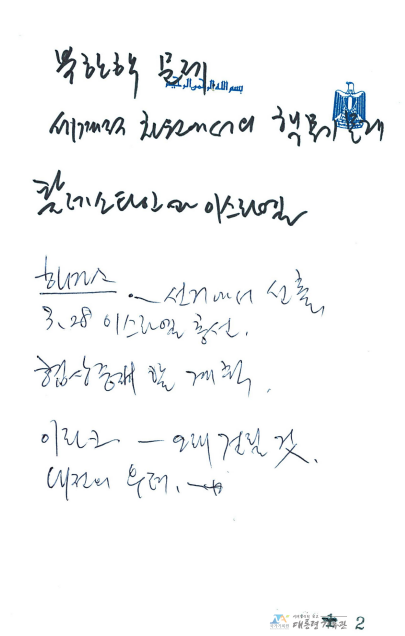 북한핵 문제
بسم الله الرحمن الرحيم
세계적 차원에서의 핵무기 문제
팔레스타인과 이스라엘
하마스 · ― 선거에서 선출,
3. 28 이스라엘 총선.
협상중재 할 계획.
이라크 ― 오래 걸릴 것.
내전의 우려.
대통령기록관 2